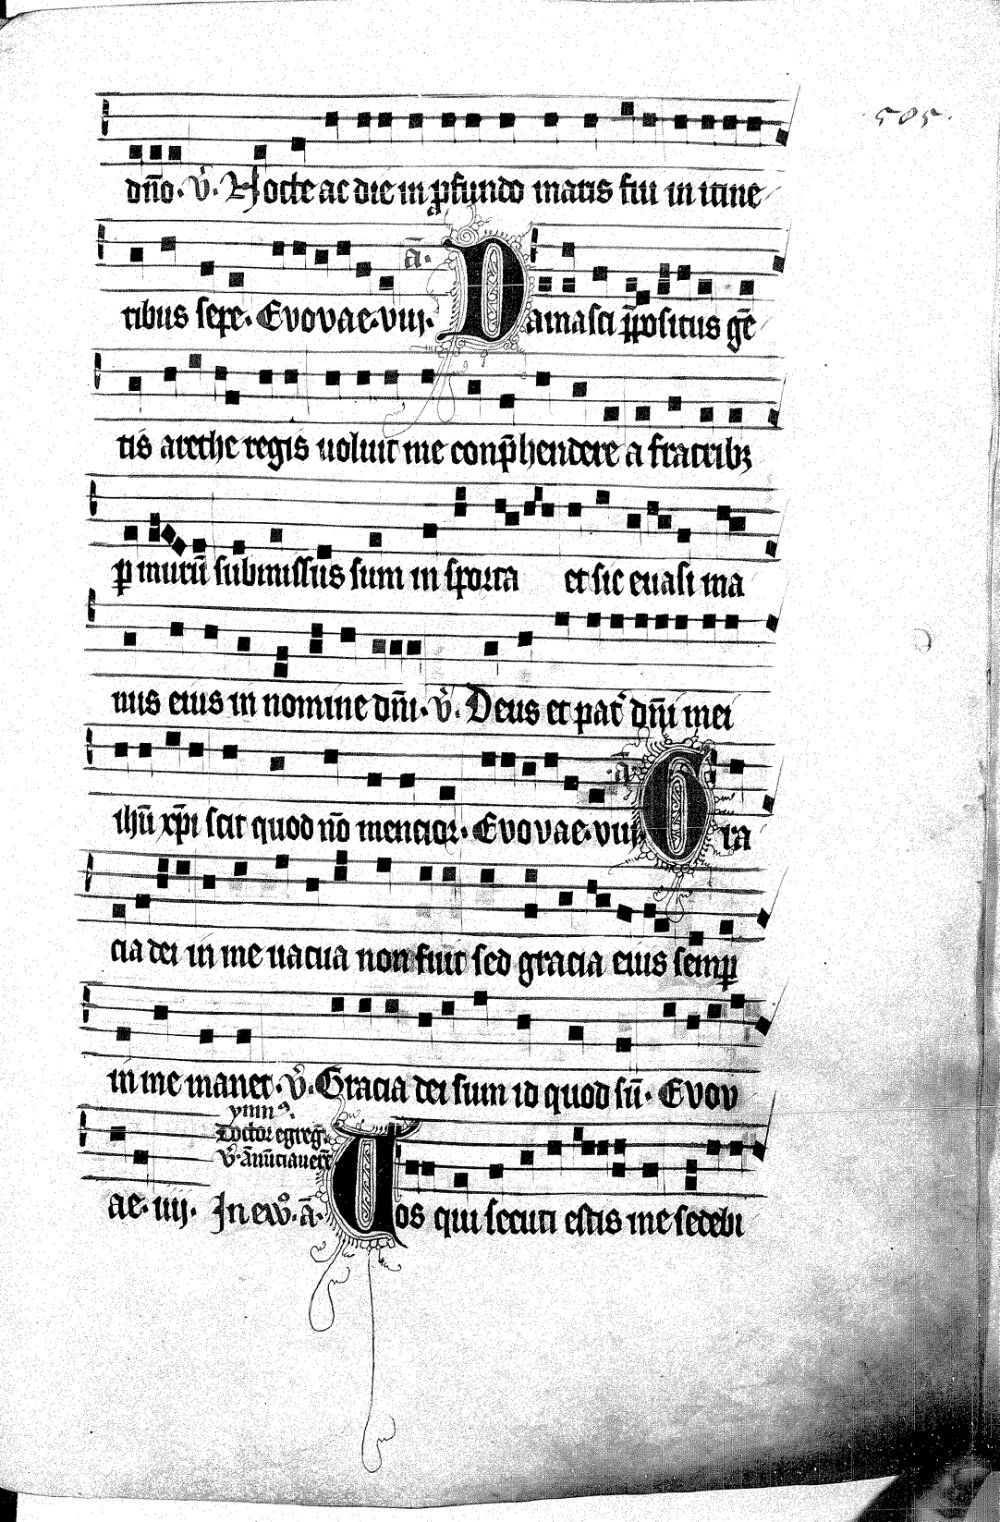 505.
dn̄o. v̄. Nocte ac die in ꝓfundo maris fui in itine
ribus sepe. Evovae. viij. a̅. Damasci p̄positus gē
tis arethe regis uoluit me conp̄hendere a fratribꝫ
ꝑ murū submissus sum in sporta et sic euasi ma
nus eius in nomine dn̄i. v̄. Deus et pat᷑ dn̄i mei
ihū xp̄i scit quod nō mencior. Evovae. viij. a̅. Gra
cia dei in me uacua non fuit sed gracia eius semꝑ
in me manet. v̄. Gracia dei sum id quod sū. Evov
ymnꝰ.
Doctor egreg̅.
v̄. Ānūciauerūt
ae. iiij. In ewº. a̅. Uos qui secuti estis me sedebi